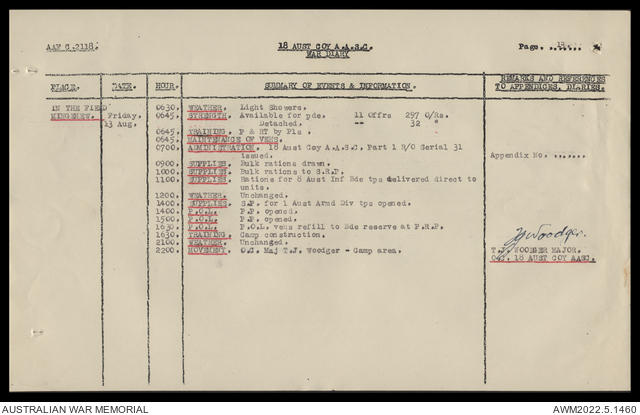 AAF C.2118.
18 AUST COY A.A.S.C.
WAR DIARY
Page.
PLACE. DATE. HOUR. SUMMARY OF EVENTS & INFORMATION. REMARKS AND REFERENCES TO APPENDICES, DIARIES.
IN THE FIELD 0630. WEATHER. Light Showers.
MINGENEW. Friday, 0645. STRENGTH. Available for pde. 11 Offrs 297 O/Rs.
13 Aug. Detached. -- 32 "
0645. TRAINING. P & RT by Pls.
0645. MAINTENANCE OF VEHS.
0700 ADMINISTRATION. 18 Aust Coy A.A.S.C. Part 1 R/O Serial 31
issued. Appendix No.
0900 SUPPLIES. Bulk rations drawn.
1000 SUPPLIES. Bulk rations to S.R.P.
1100 SUPPLIES. Rations for 8 Aust Inf Bde tps delivered direct to
units.
1200 WEATHER. Unchanged.
1400 SUPPLIES. S.P. for 1 Aust Armd Div tps opened.
1400 P.O.L. P.P. opened.
1500 P.O.L. P.P. opened.
1630 P.O.L. P.O.L. vehs refill to Bde reserve at P.R.P.
1630 TRAINING. Camp construction.
2100 WEATHER. Unchanged.
2200 MOVEMENT. O.C. Maj T.J. Woodger - Camp area.
TJWoodger.
T.J. WOODGER MAJOR.
O.C. 18 AUST COY AASC.
AUSTRALIAN WAR MEMORIAL
AWM2022.5.1460